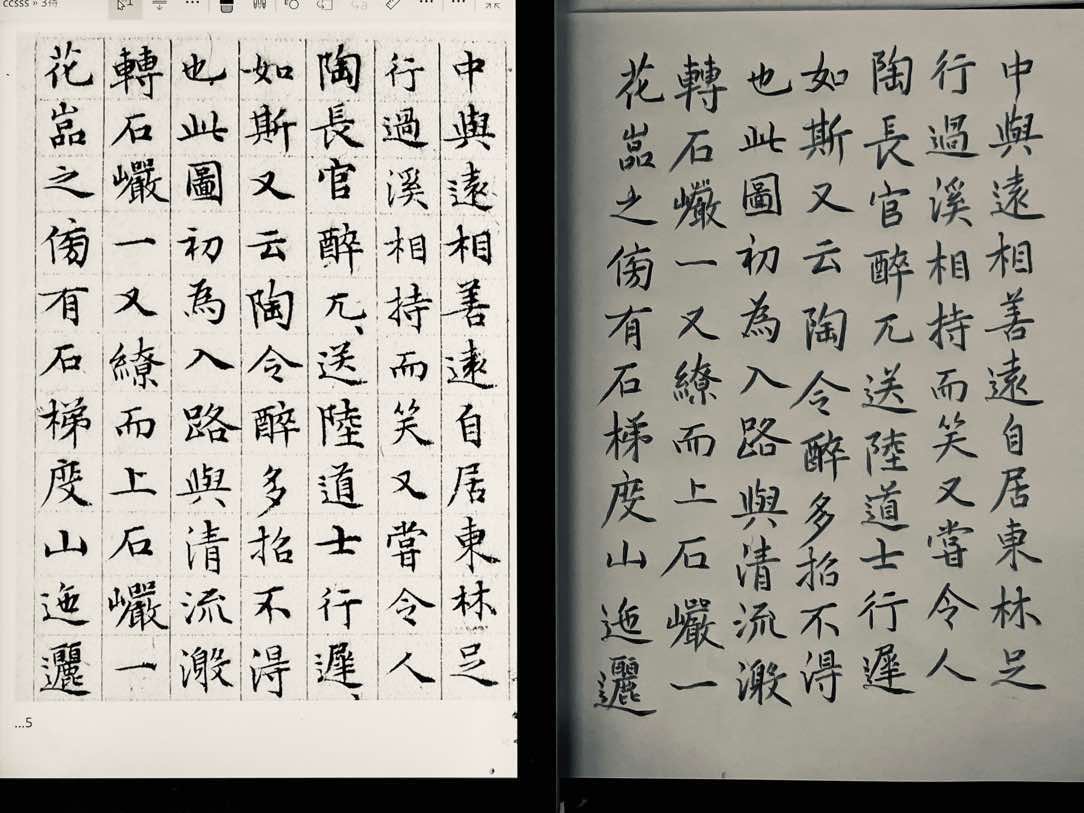 ccsss » 3倍
中與遠相善遠自居東林足
行過溪相持而笑又嘗令人
陶長官醉兀、送陸道士行遲、
如斯又云陶令醉多招不得
也此圖初為入路與清流激
轉石巗一又繚而上石巗一
花嵓之傍有石梯度山迤邐
...5
中與遠相善遠自居東林足
行過溪相持而笑又嘗令人
陶長官醉兀送陸道士行遲
如斯又云陶令醉多招不得
也此圖初為入路與清流激
轉石巗一又繚而上石巗一
花嵓之傍有石梯度山迤邐